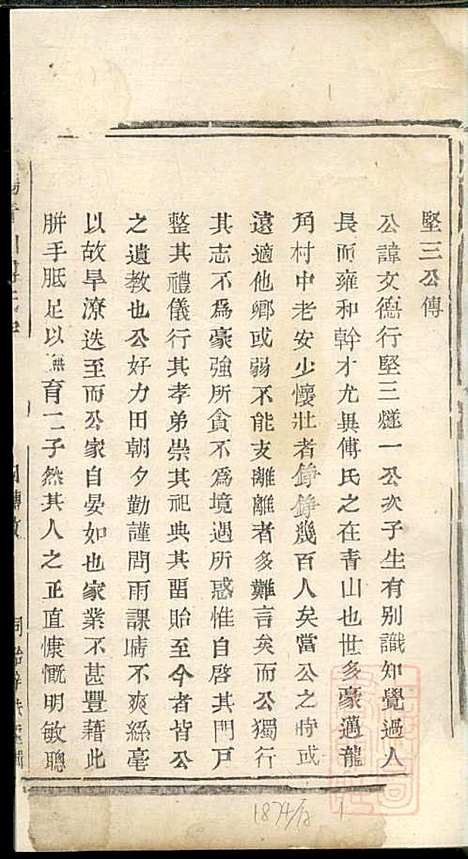 堅三公傳
公諱文德行堅三燧一公次子生有別識知覺過人
長而雍和幹才尤異傅氏之在青山也世多豪邁龍
角村中老安少懷壯者錚錚幾百人矣當公之時或
遠適他鄉或弱不能支離離者多難言矣而公獨行
其志不為豪強所貪不為境遇所惑惟自啓其門戶
整其禮儀行其孝弟崇其祀典其畱貽至今者皆公
之遺教也公好力田朝夕勤謹問雨課晴不爽絲毫
以故旱潦迭至而公家自晏如也家業不甚豐藉此
胼手胝足以無育一二子然其人之正直慷慨明敏聰
1874/12 1